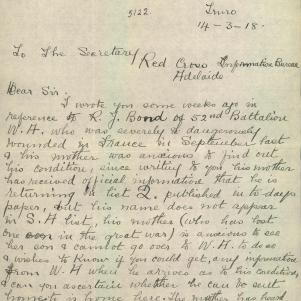 5122.
Truro
14-3-18.
To The Secretary
Red Cross Information Bureau
Adelaide
Dear Sir.
I wrote you some weeks ago in
reference to R. J. Bond of 52nd Battalion
W.A. who was severely & dangerously
wounded in France in September last
& his mother was anxious to find out
his condition, since writing to you his mother
has received official information that he is
returning & list 2. published in to-days
paper, but his name does not appear
in S.A list, his mother (who has lost
one son in the great war) is anxious to see
her son & cannot go over to W.A. to do so
& wishes to know if you could get any information
from W.A when he arrives as to his condition
& can you ascertain whether he can be sent
to his home here. The mother has